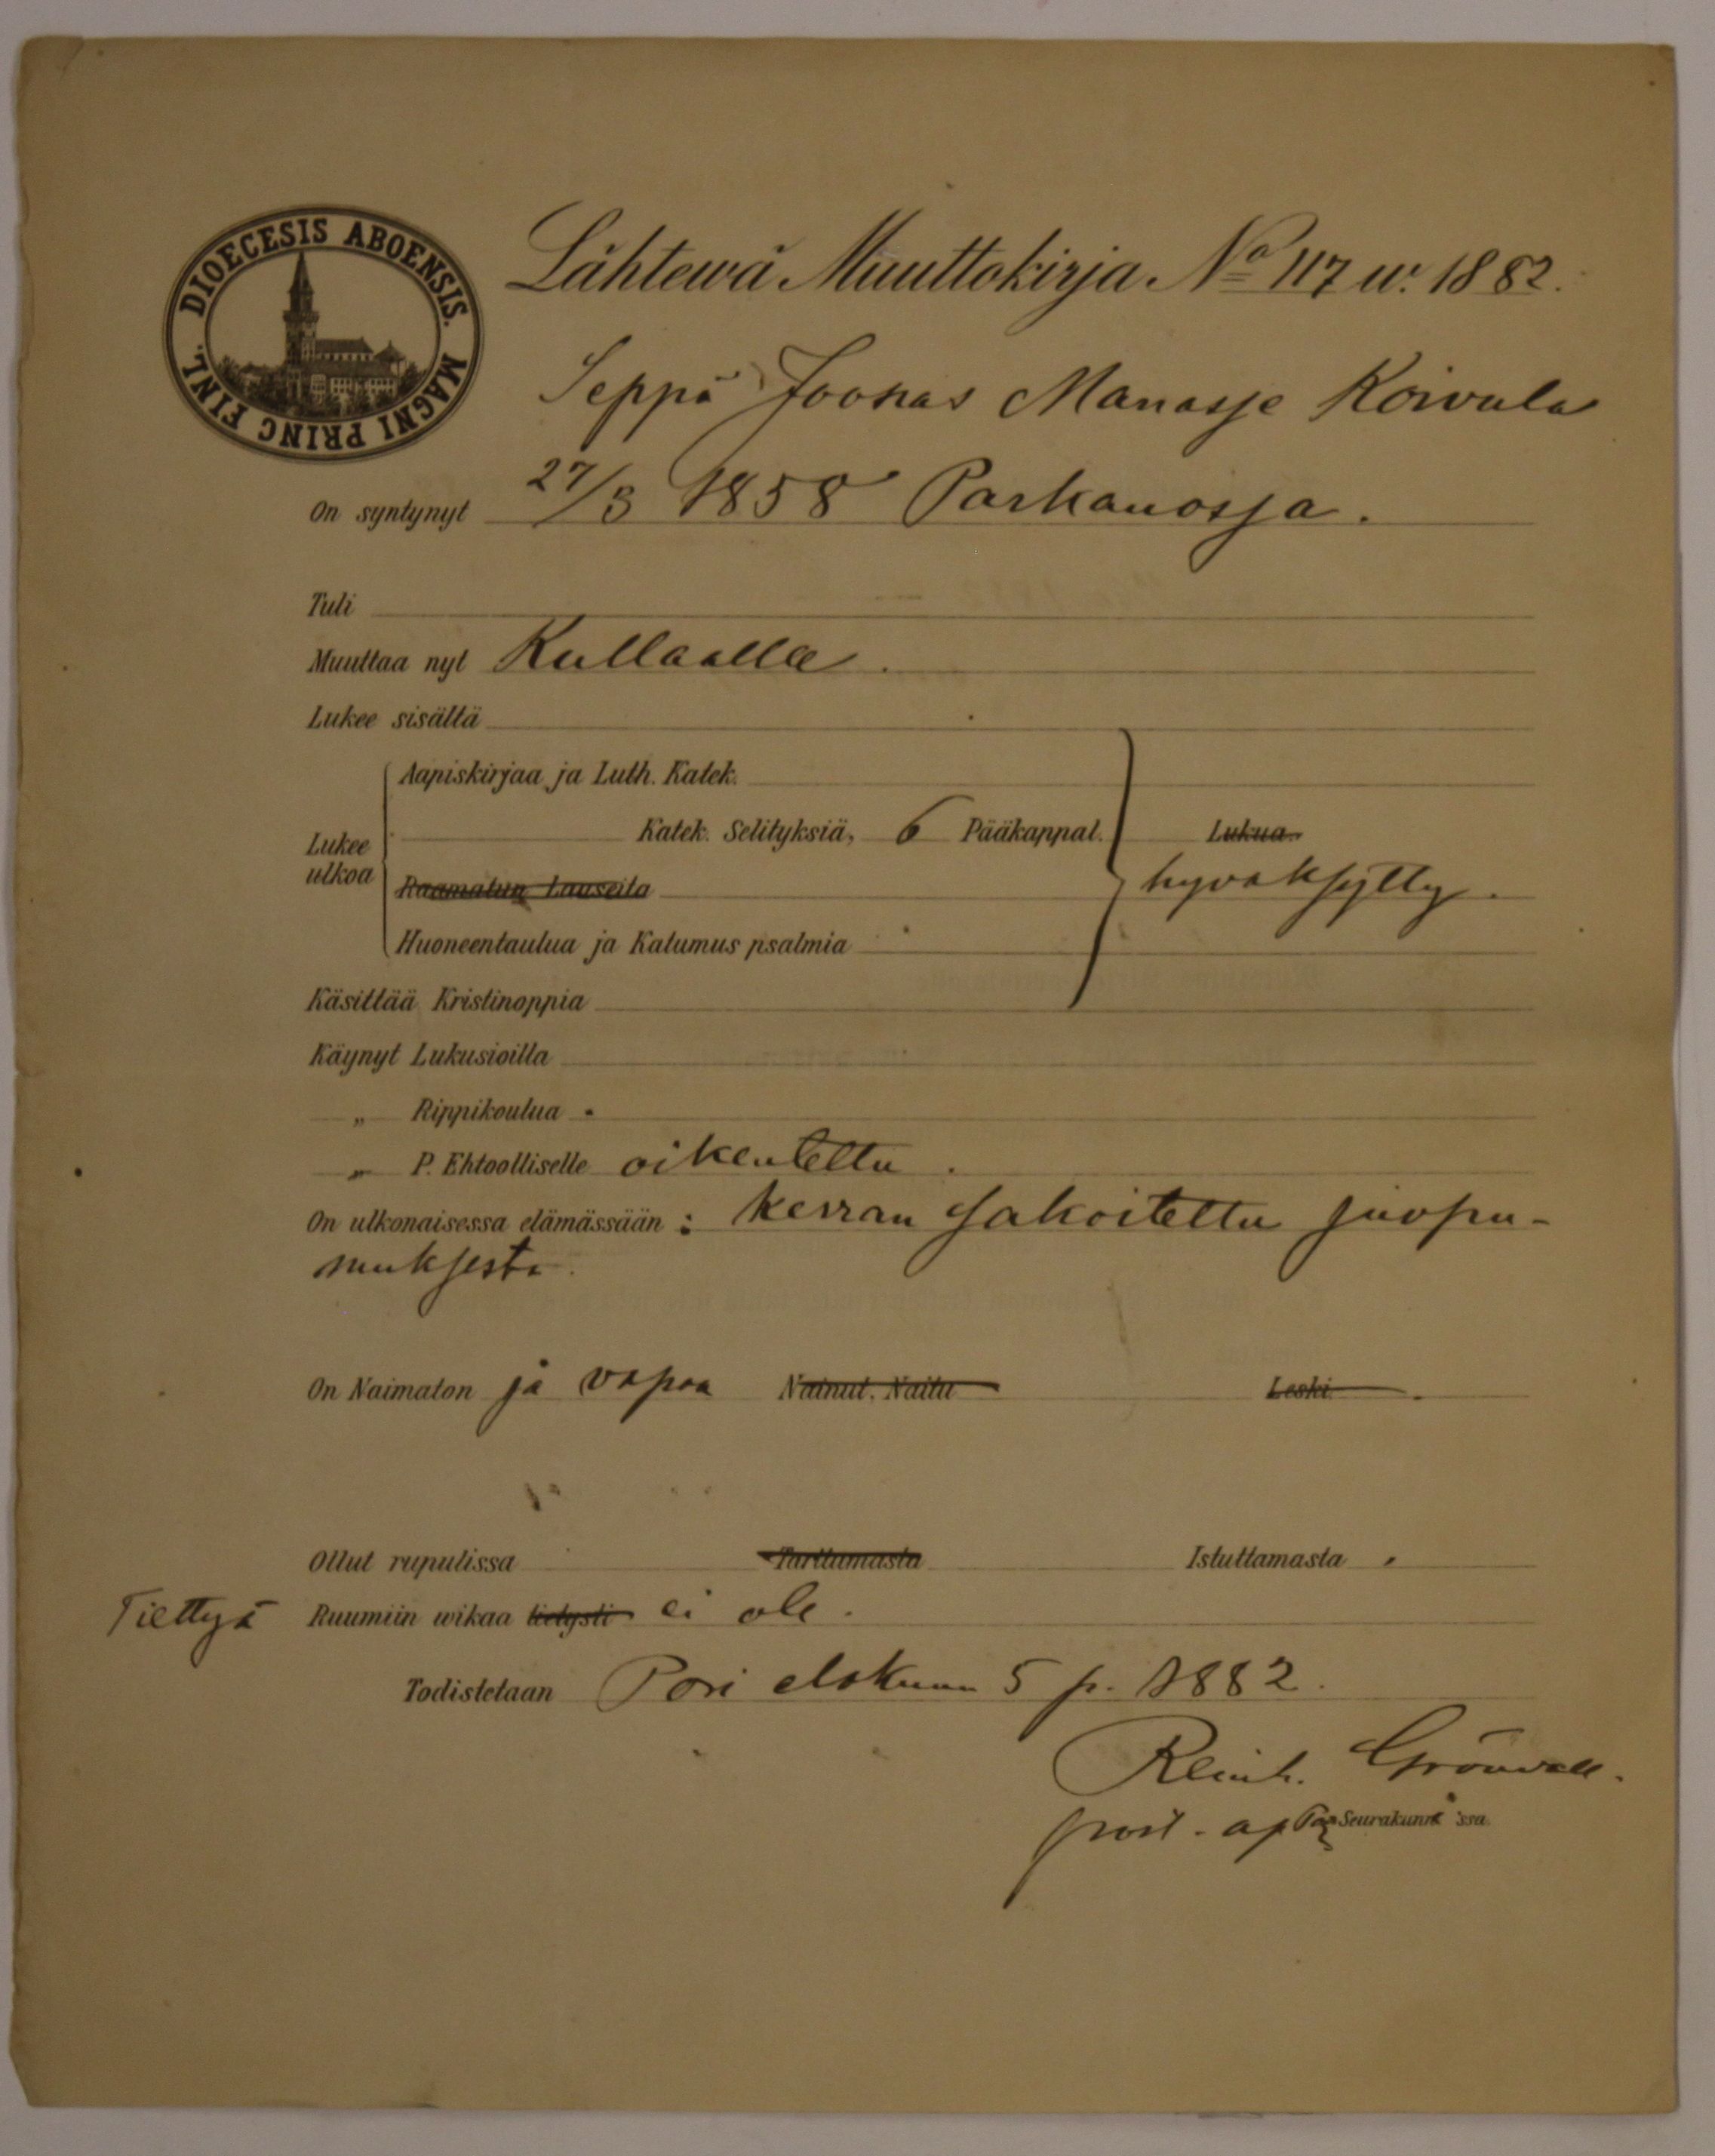 DIOECESIS ABOENSIS. MAGNI PRINC FINL.
Lähtewä Muuttokirja No 117 w. 1882.
Seppä Joonas Manasse Koivula
On syntynyt 27/3 1858 Parkanossa.
Tuli
Muuttaa nyt Kullaalle.
Lukee sisältä
Aapiskirjaa ja Luth. Katek.
Lukee ulkoa
Katek. Selityksiä, 6 Pääkappal. Lukua.
Raamatun Lauseita hyväksytty.
Huoneentaulua ja Katumus psalmia
Käsittää Kristinoppia
Käynyt Lukusioilla
„ Rippikoulua
„ P. Ehtoolliselle oikeutettu.
On ulkonaisessa elämässään: kerran sakoitettu juopu-
muksesta.
On Naimaton ja vapaa Nainut, Naitu Leski.
Ollut rupulissa Tarttumasta Istuttamasta
Tiettyä Ruumiin wikaa tietysti ei ole.
Todistetaan Pori elokuun 5 p. 1882.
Reinh. Grönvall.
prov. ap. Porin Seurakunnassa.